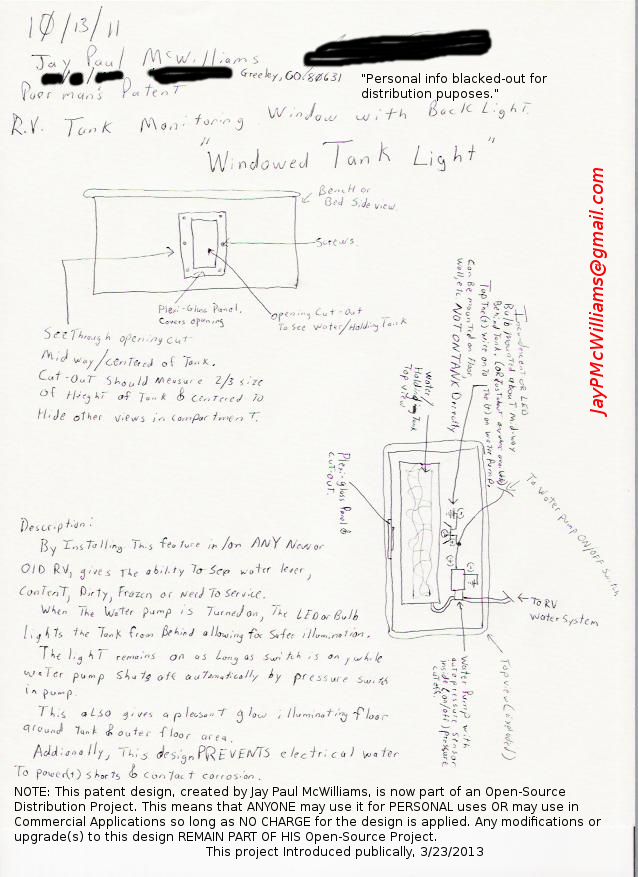 10/13/11
Jay Paul McWilliams
Greeley, CO. 80631
"Personal info blacked-out for
distribution puposes."
Poor man's Patent
R.V. Tank Monitoring Window with Back Light.
"Windowed Tank Light"
Bench or
Bed Side view.
Screws.
Plexi-Glass Panel.
Covers opening
Opening Cut-Out
To See Water/Holding Tank
See Through opening cut
Mid way/centered of Tank.
Cut-Out Should Measure 2/3 size
of Hieght of Tank & centered To
Hide other views in compartment.
JayPMcWilliams@gmail.com
Incundencent OR LED
Bulb mounted about mid-way
Behind Tank.
Tap The (+) wire onto The (+) on water Pump.
Can Be mounted on Floor,
Wall, etc NOT ON TANK Directly
Water/
Holding Tank
Top View
Plexi-glass Panel &
CUT-OUT.
To Water pump ON/OFF Switch
(+)
(+)
To RV
Water System
Top view (exploded)
Water Pump with
auto pressure sensor
inside (on/off) pressure
cutoff.
Description:
By Installing This feature in/on ANY New or
Old RV, gives The ability To See water lever,
Content, Dirty, Frozen or Need To Service.
When The Water pump is Turned on, The LED or Bulb
lights the Tank from Behind allowing for Safer illumination.
The light remains on as Long as switch is on, while
water pump Shuts off automatically by pressure switch
in pump.
This also gives a pleasant glow illuminating floor
around Tank & outer floor area.
Addionally, This design PREVENTS electrical water
To Power(+) shorts & contact corrosion.
NOTE: This patent design, created by Jay Paul McWilliams, is now part of an Open-Source
Distribution Project. This means that ANYONE may use it for PERSONAL uses OR may use in
Commercial Applications so long as NO CHARGE for the design is applied. Any modifications or
upgrade(s) to this design REMAIN PART OF HIS Open-Source Project.
This project Introduced publically, 3/23/2013